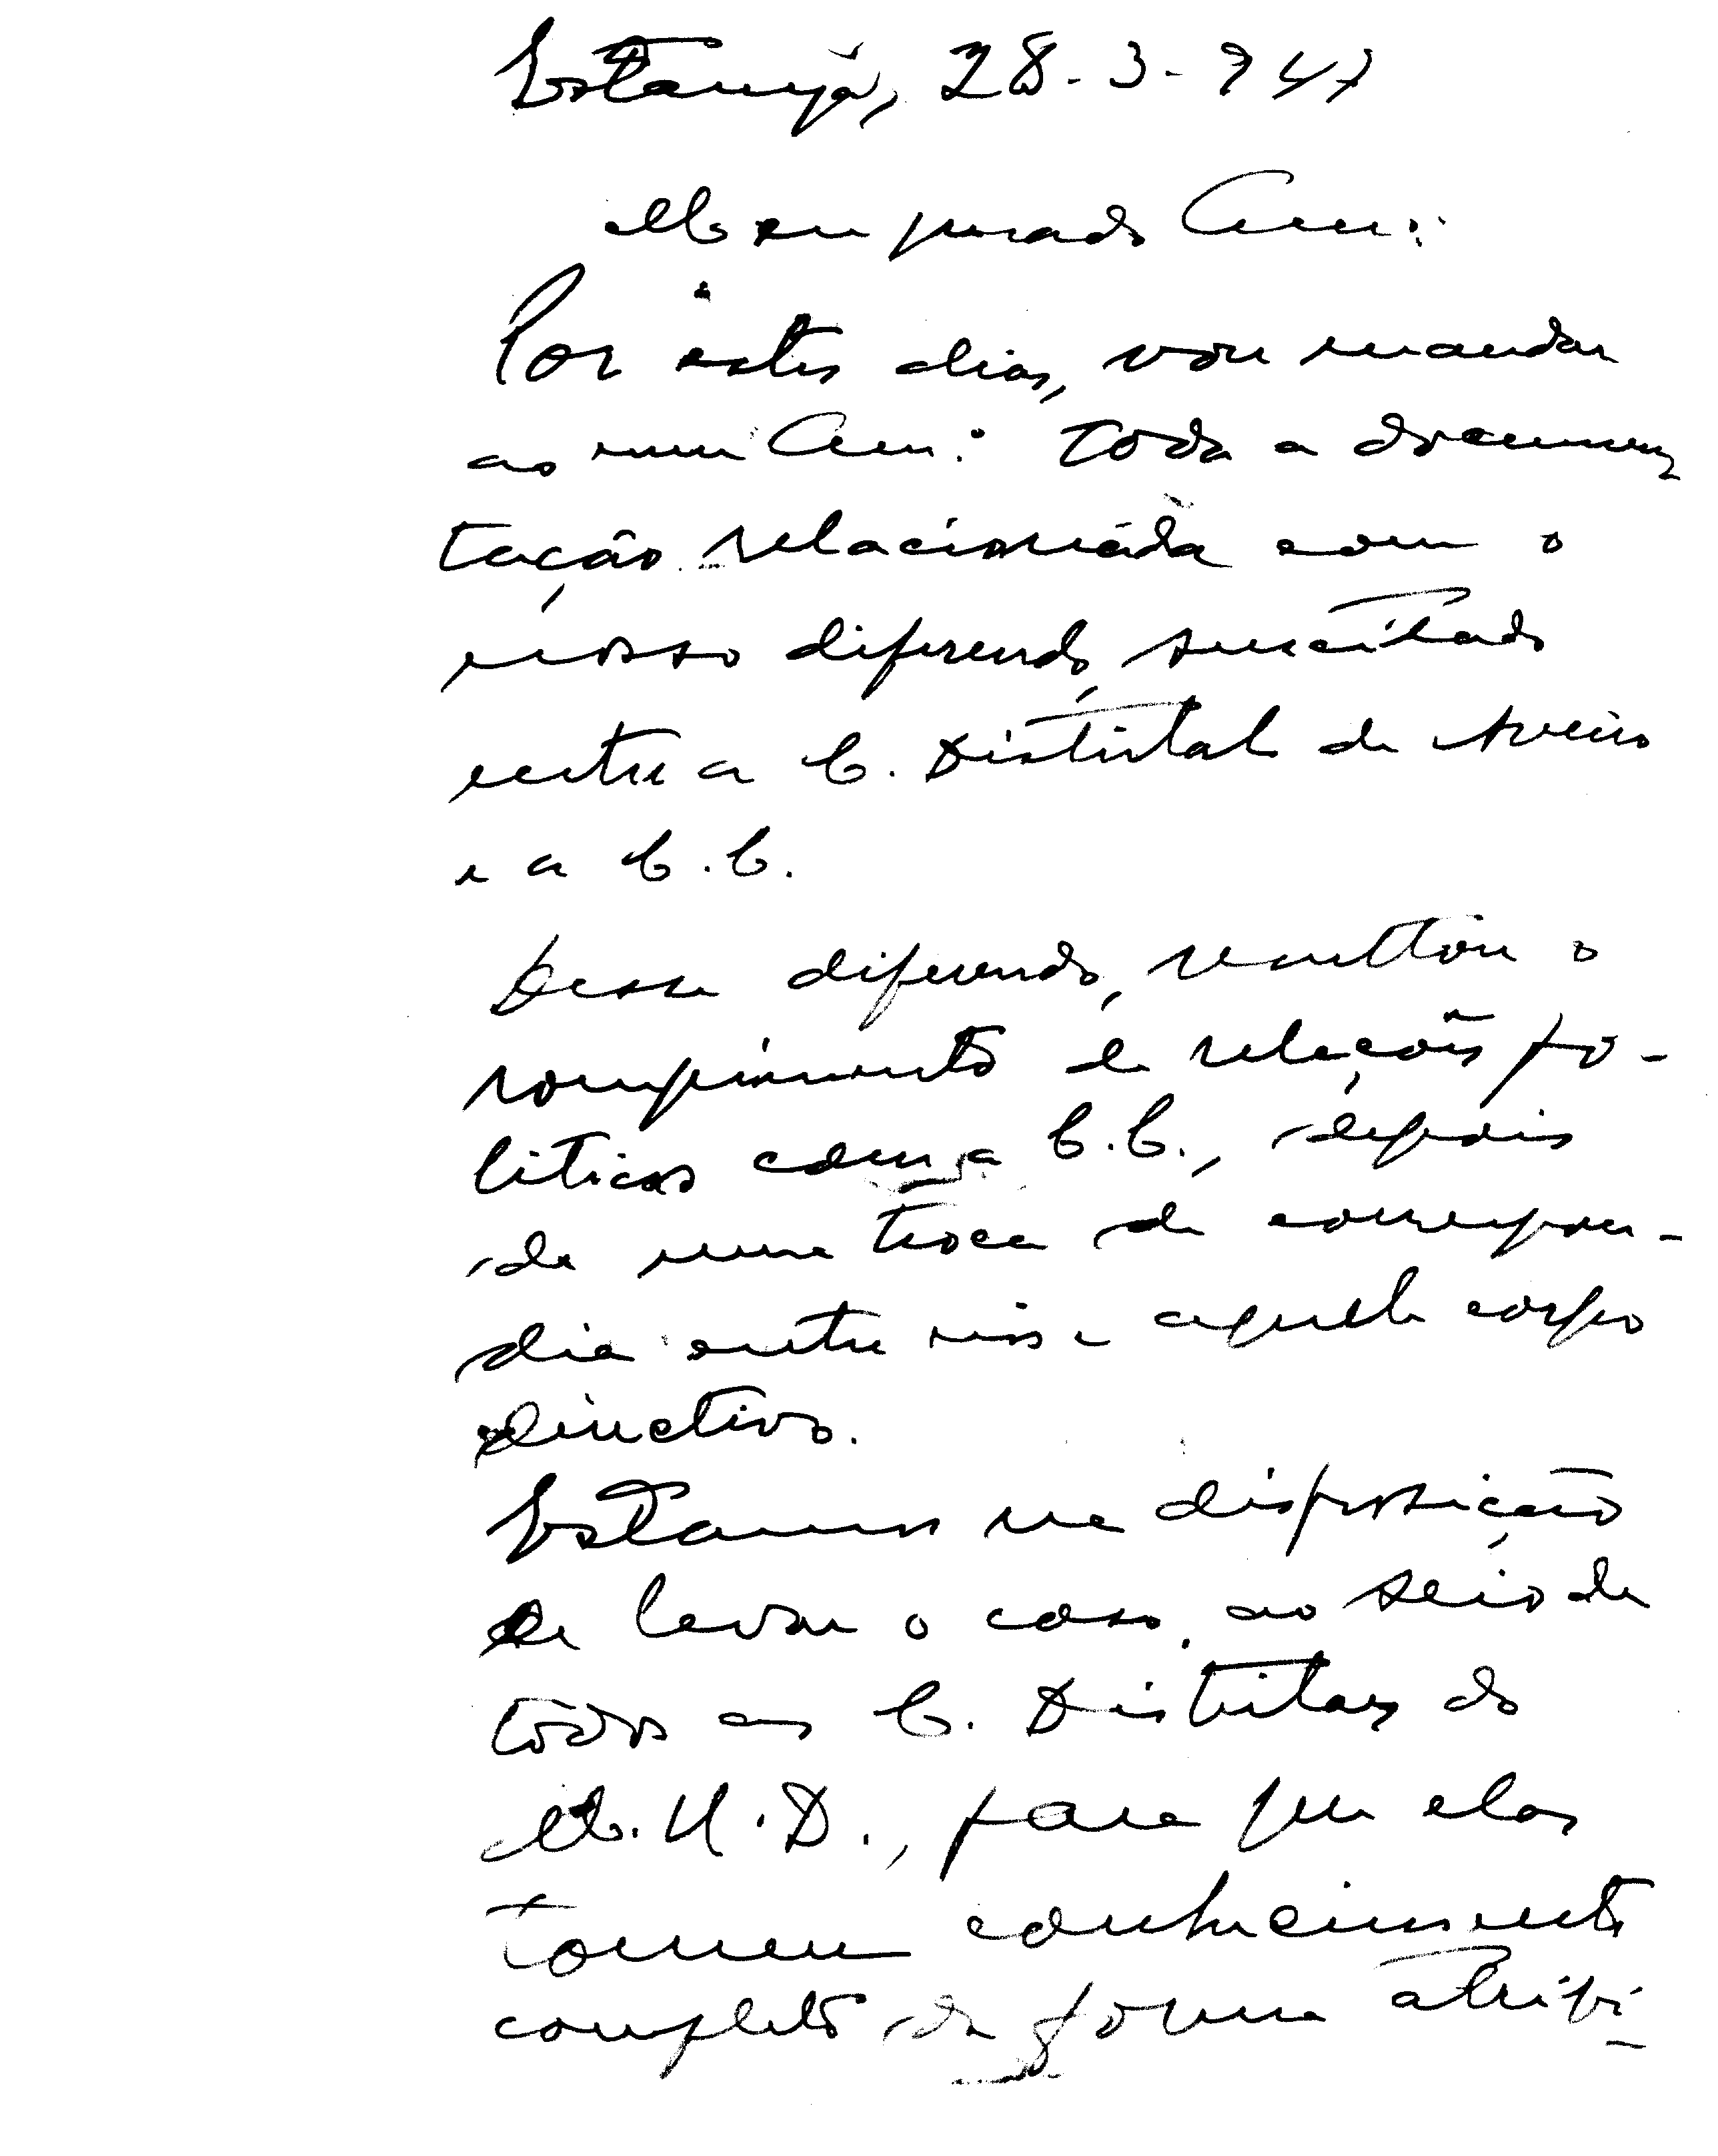 Estarreja, 28-3-947
Meu prezado Am.º:
Por estes dias, vou mandar
ao meu Am.º toda a documen
tação relacionada com o
nosso diferendo, suscitado
entre a C. Distrital de Aveiro
e a C.C.
Desse diferendo, resultou o
rompimento de relações po-
liticas com a C.C., depois
de uma troca de correspon-
dia entre nós e aquele corpo
directivo.
Estamos na disposição
de levar o caso, ao seio de
todas as C. Distritais do
M.U.D., para que elas
tomem conhecimento
completo da forma